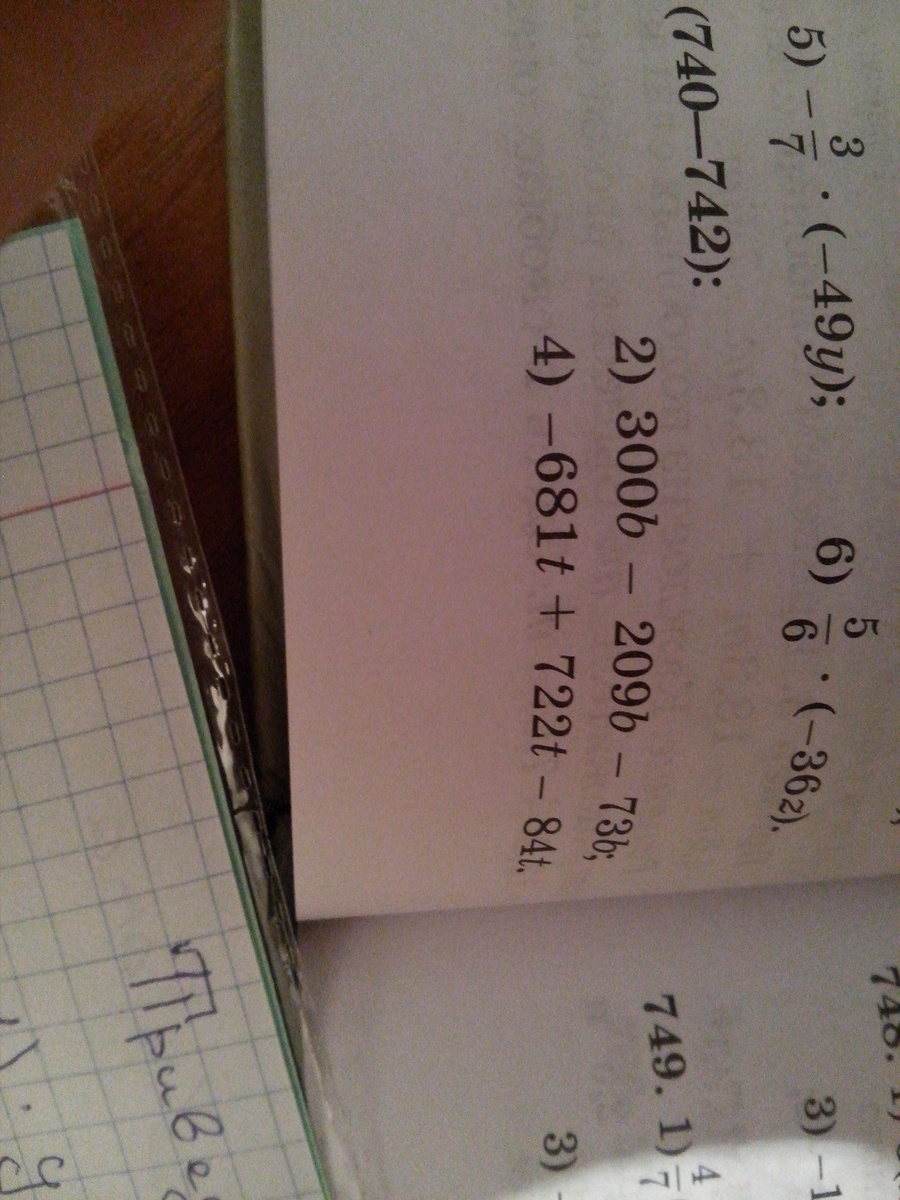 5) −3/7 · (−49y); 6) 5/6 · (−36z).
(740—742):
2) 300b − 209b − 73b;
4) −681t + 722t − 84t.
748. 1)
3) −1
749. 1) 4/7
3) −